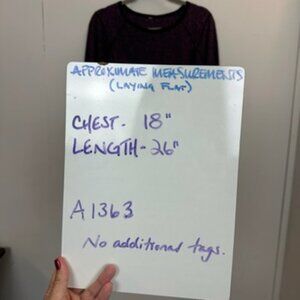 APPROXIMATE MEASUREMENTS
(LAYING FLAT)
CHEST- 18"
LENGTH-26"
A1363
No additional tags.